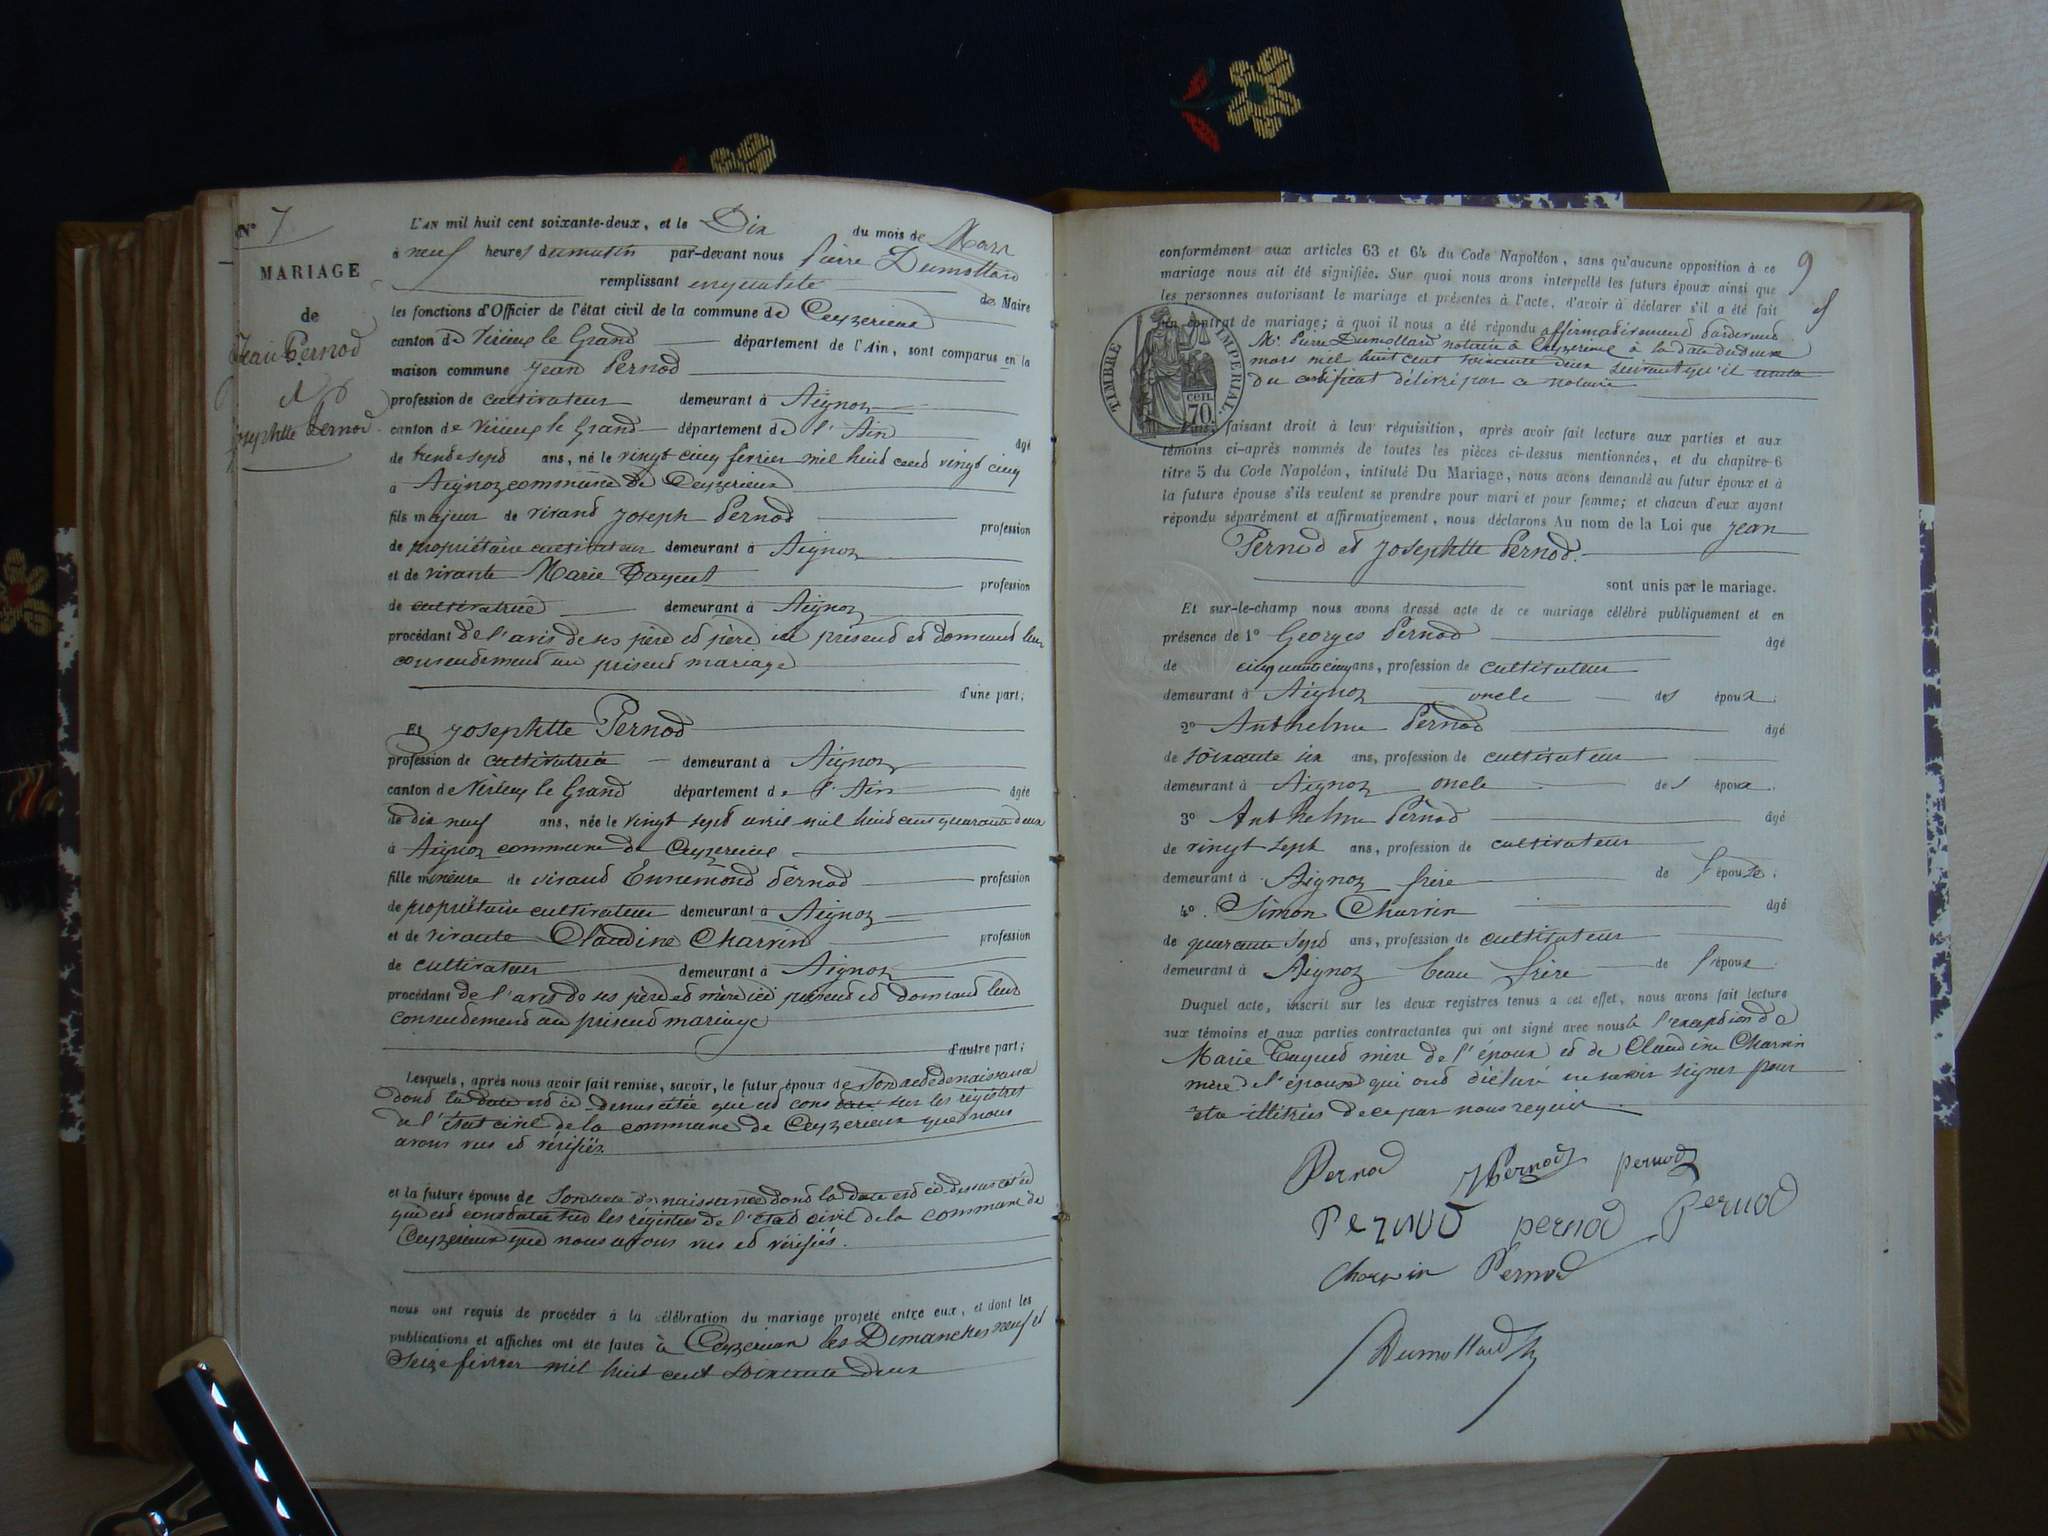 N° 7
MARIAGE
de
Jean Pernod
et
Josephtte Pernod
L'AN mil huit cent soixante-deux, et le Dix du mois de Mars
à neuf heures du matin par-devant nous Pierre Dumollard
remplissant en qualité de Maire
les fonctions d'Officier de l'état civil de la commune de Ceyzerieux
canton de Virieux le Grand département de l'Ain, sont comparus en la
maison commune Jean Pernod
profession de cultivateur demeurant à Aignoz
canton de Virieux le Grand département de l'Ain âgé
de trente sept ans, né le vingt cinq février mil huit cent vingt cinq
à Aignoz commune de Ceyzerieux
fils majeur de vivant Joseph Pernod profession
de propriétaire cultivateur demeurant à Aignoz
et de vivante Marie Tayeut profession
de cultivatrice demeurant à Aignoz
procédant de l'avis de ses père et père ici présend et donnand leur
consendemend au présend mariage
d'une part;
Et Josephtte Pernod
profession de cultivatrice demeurant à Aignoz
canton de Virieux le Grand département de l'Ain âgée
de dix neuf ans, née le vingt sept avril mil huid cent quarante deux
à Aignoz commune de Ceyzerieux
fille mineure de vivand Ennemond Pernod profession
de propriétaire cultivateur demeurant à Aignoz
et de vivante Claudine Charvin profession
de cultivateur demeurant à Aignoz
procédant de l'avis de ses père et mère ici présend et donnand leur
consendemend au présend mariage
d'autre part;
Lesquels, après nous avoir fait remise, savoir, le futur époux de son acte de naissance
dond la date est ci dessus citée que est sur les régistres
de l'état civil de la commune de Ceyzerieux que nous
avons vus et vérifiés
et la future épouse de son acte de naissance dond la date est ci dessus citée
qui est constatée sur les régistres de l'état civil de la commune de
Ceyzerieux que nous avons vus et vérifiés.
nous ont requis de procéder à la célébration du mariage projeté entre eux, et dont les
publications et affiches ont été faites à Ceyzerieux les Dimanches neuf et
seize février mil huit cent soixante deux
9
conformément aux articles 63 et 64 du Code Napoléon, sans qu'aucune opposition à ce
mariage nous ait été signifiée. Sur quoi nous avons interpellé les futurs époux ainsi que
les personnes autorisant le mariage et présentes à l'acte, d'avoir à déclarer s'il a été fait
un contrat de mariage; à quoi il nous a été répondu affirmativement pardevand
Me Pierre Dumollard notaire à Ceyzerieux à la date du deux
mars mil huit cent soixante deux suivant qu'il resulte
du certificat délivré par ce notaire
TIMBRE IMPERIAL
70 CEN.
Puis, faisant droit à leur réquisition, après avoir fait lecture aux parties et aux
témoins ci-après nommés de toutes les pièces ci-dessus mentionnées, et du chapitre 6
titre 5 du Code Napoléon, intitulé Du Mariage, nous avons demandé au futur époux et à
la future épouse s'ils veulent se prendre pour mari et pour femme; et chacun d'eux ayant
répondu séparément et affirmativement, nous déclarons Au nom de la Loi que Jean
Pernod et Josephtte Pernod.
sont unis par le mariage.
Et sur-le-champ nous avons dressé acte de ce mariage célébré publiquement et en
présence de 1° Georges Pernod âgé
de cinquante cinq ans, profession de cultivateur
demeurant à Aignoz oncle des époux.
2° Anthelme Pernod âgé
de soixante six ans, profession de cultivateur
demeurant à Aignoz oncle des époux.
3° Anthelme Pernod âgé
de vingt sept ans, profession de cultivateur
demeurant à Aignoz frère de l'épouse.
4° Simon Charvin âgé
de quarante sept ans, profession de cultivateur
demeurant à Aignoz beau frère de l'époux
Duquel acte, inscrit sur les deux registres tenus à cet effet, nous avons fait lecture
aux témoins et aux parties contractantes qui ont signé avec nous à l'exception de
Marie Tayeud mère de l'époux et de Claudine Charvin
mère de l'épouse qui ond déclaré ne savoir signer pour
etre illétrées de ce par nous requis.
Pernod JPernod pernod
Pernod pernod Pernod
Charvin Pernod
Dumollard